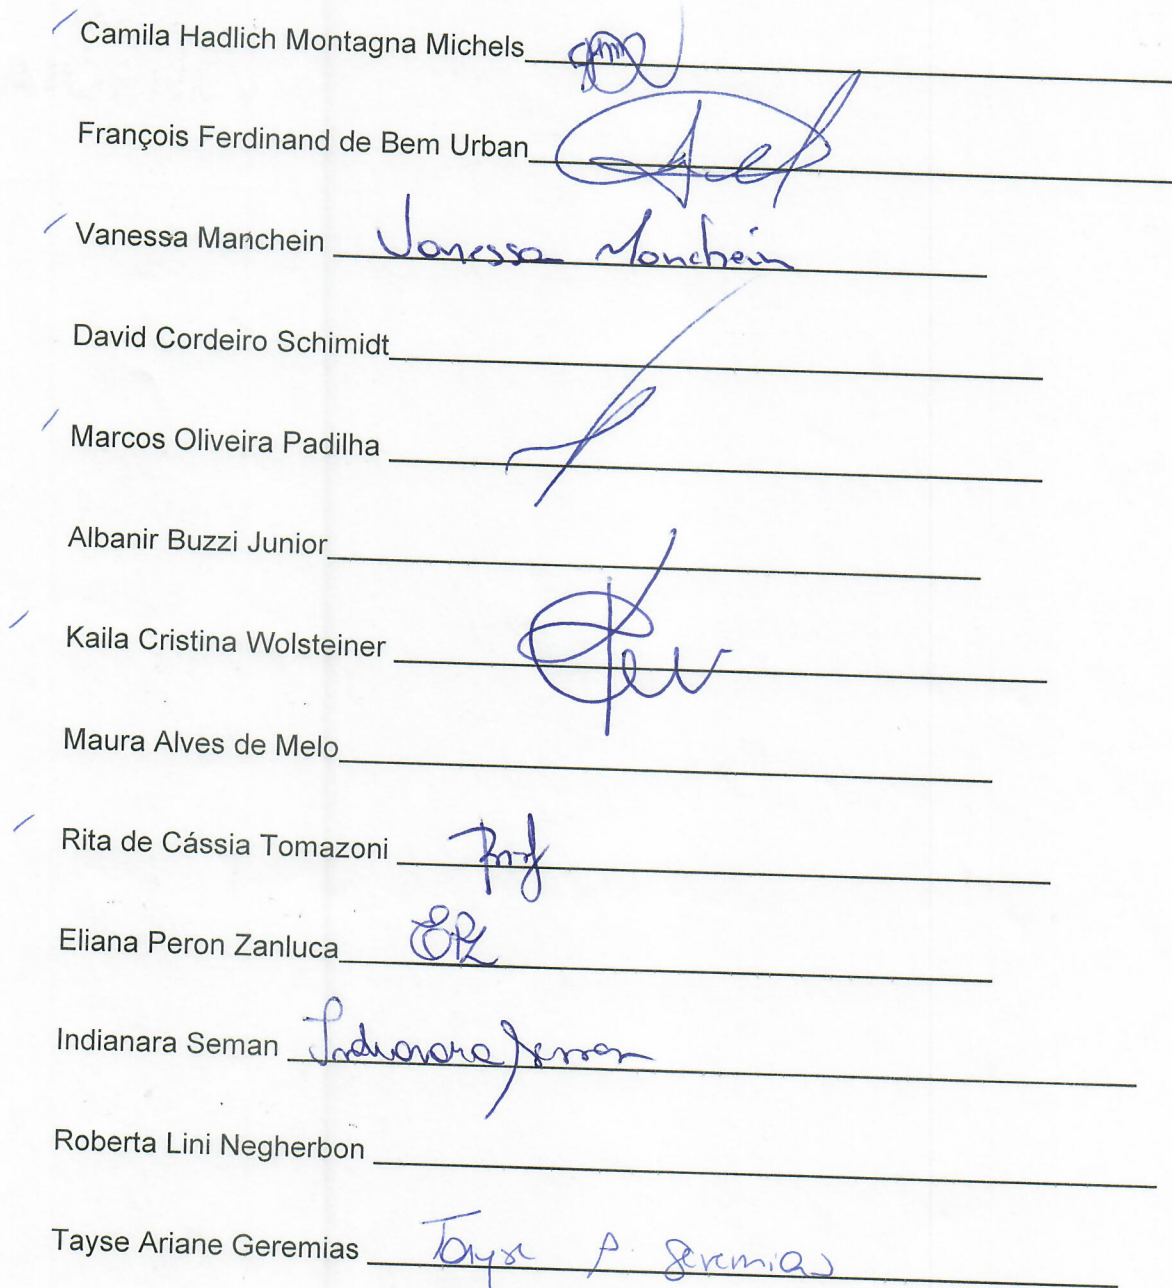 Camila Hadlich Montagna Michels
François Ferdinand de Bem Urban
Vanessa Manchein Vanessa Manchein
David Cordeiro Schimidt
Marcos Oliveira Padilha
Albanir Buzzi Junior
Kaila Cristina Wolsteiner
Maura Alves de Melo
Rita de Cássia Tomazoni
Eliana Peron Zanluca EPZ
Indianara Seman Indianara Seman
Roberta Lini Negherbon
Tayse Ariane Geremias Tayse A. Geremias